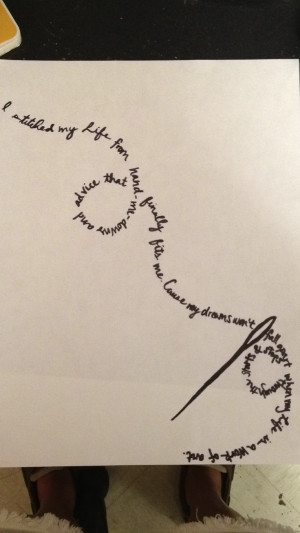 I stitched my Life from hand-me-downs and advice that finally fits me. Cause my dreams won't fall apart when my life is a work-of-art.